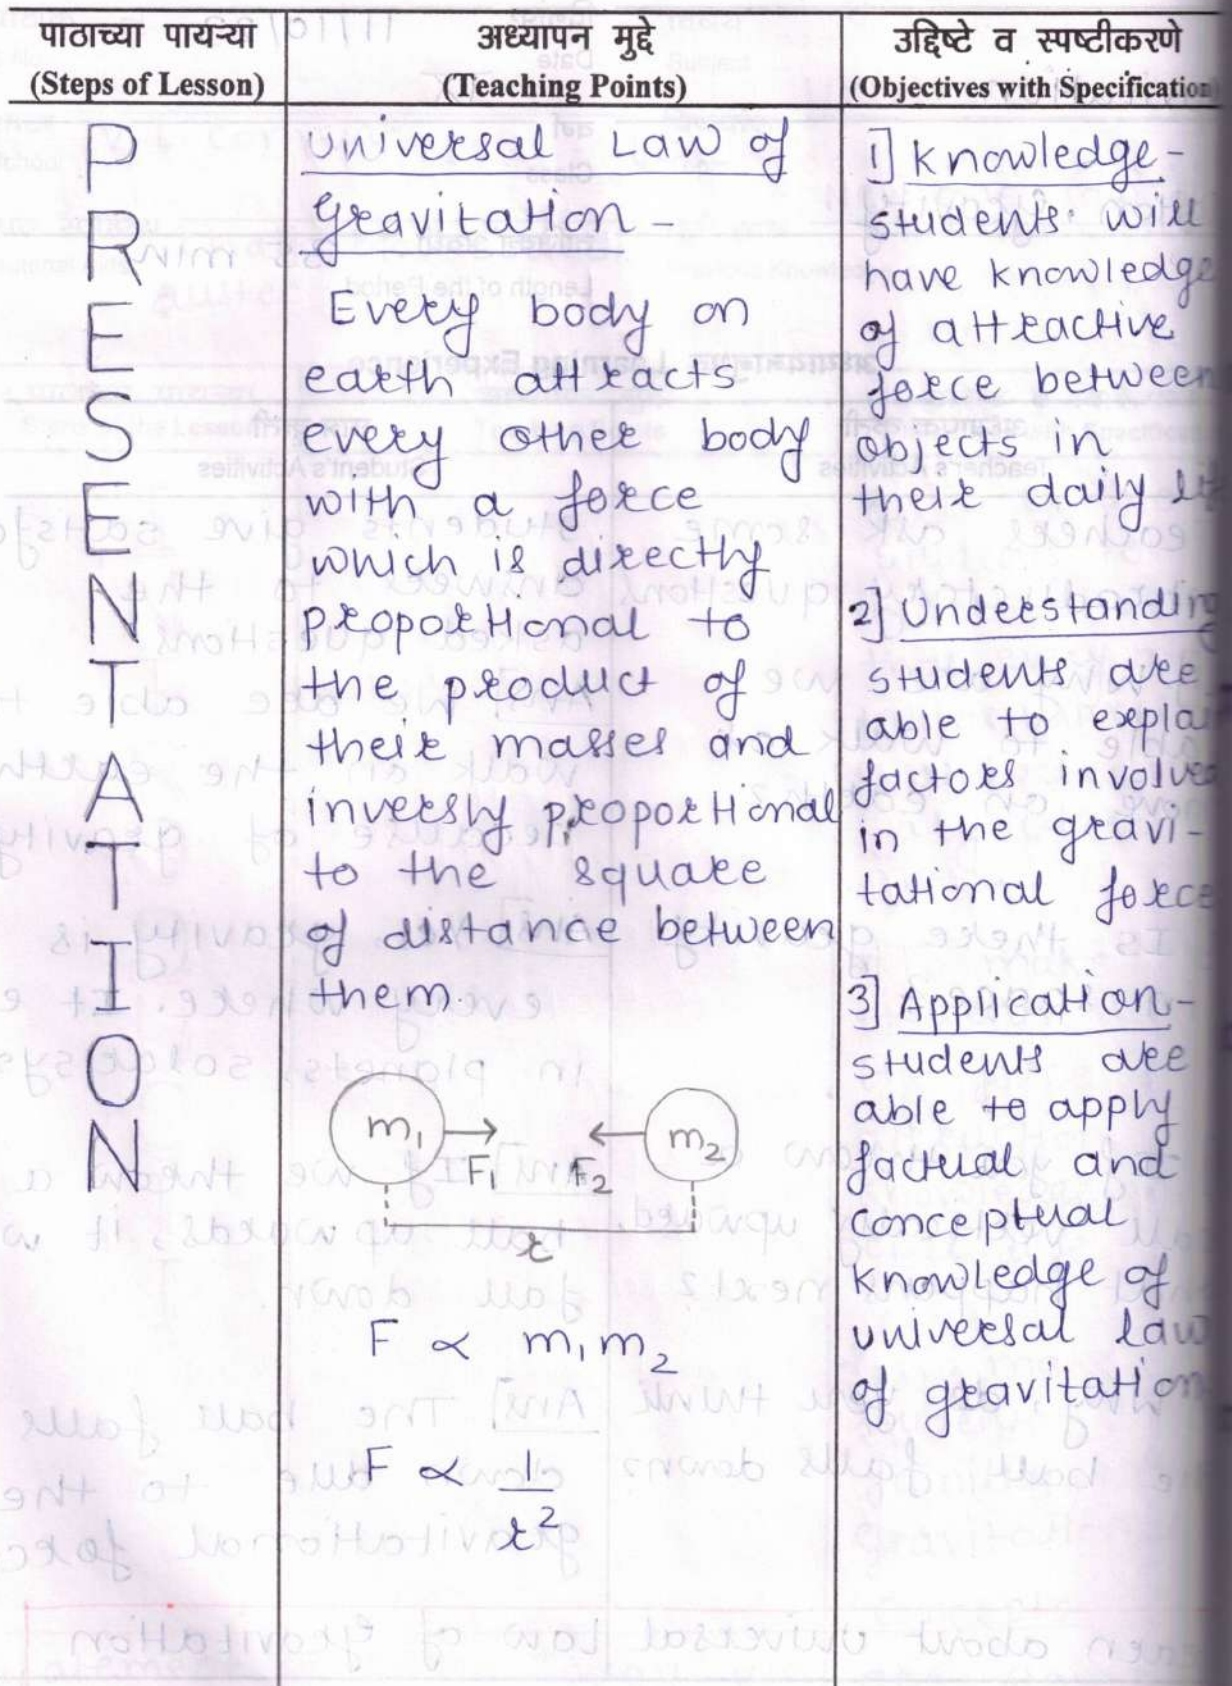 पाठाच्या पायऱ्या
(Steps of Lesson)
अध्यापन मुद्दे
(Teaching Points)
उद्दिष्टे व स्पष्टीकरणे
(Objectives with Specification
PRESENTATION
Universal Law of
gravitation -
Every body on
earth attracts
every other body
with a force
which is directly
proportional to
the product of
their masses and
inversly proportional
to the square
of distance between
them.
m₁ F₁ F₂ m₂
r
F ∝ m₁m₂
F ∝ 1/r²
1] knowledge -
students will
have knowledge
of attractive
force between
objects in
their daily
2] Understanding
students are
able to expla
factors involve
in the gravi-
tational force
3] Application -
students are
able to apply
factual and
conceptual
knowledge of
universal law
of gravitation